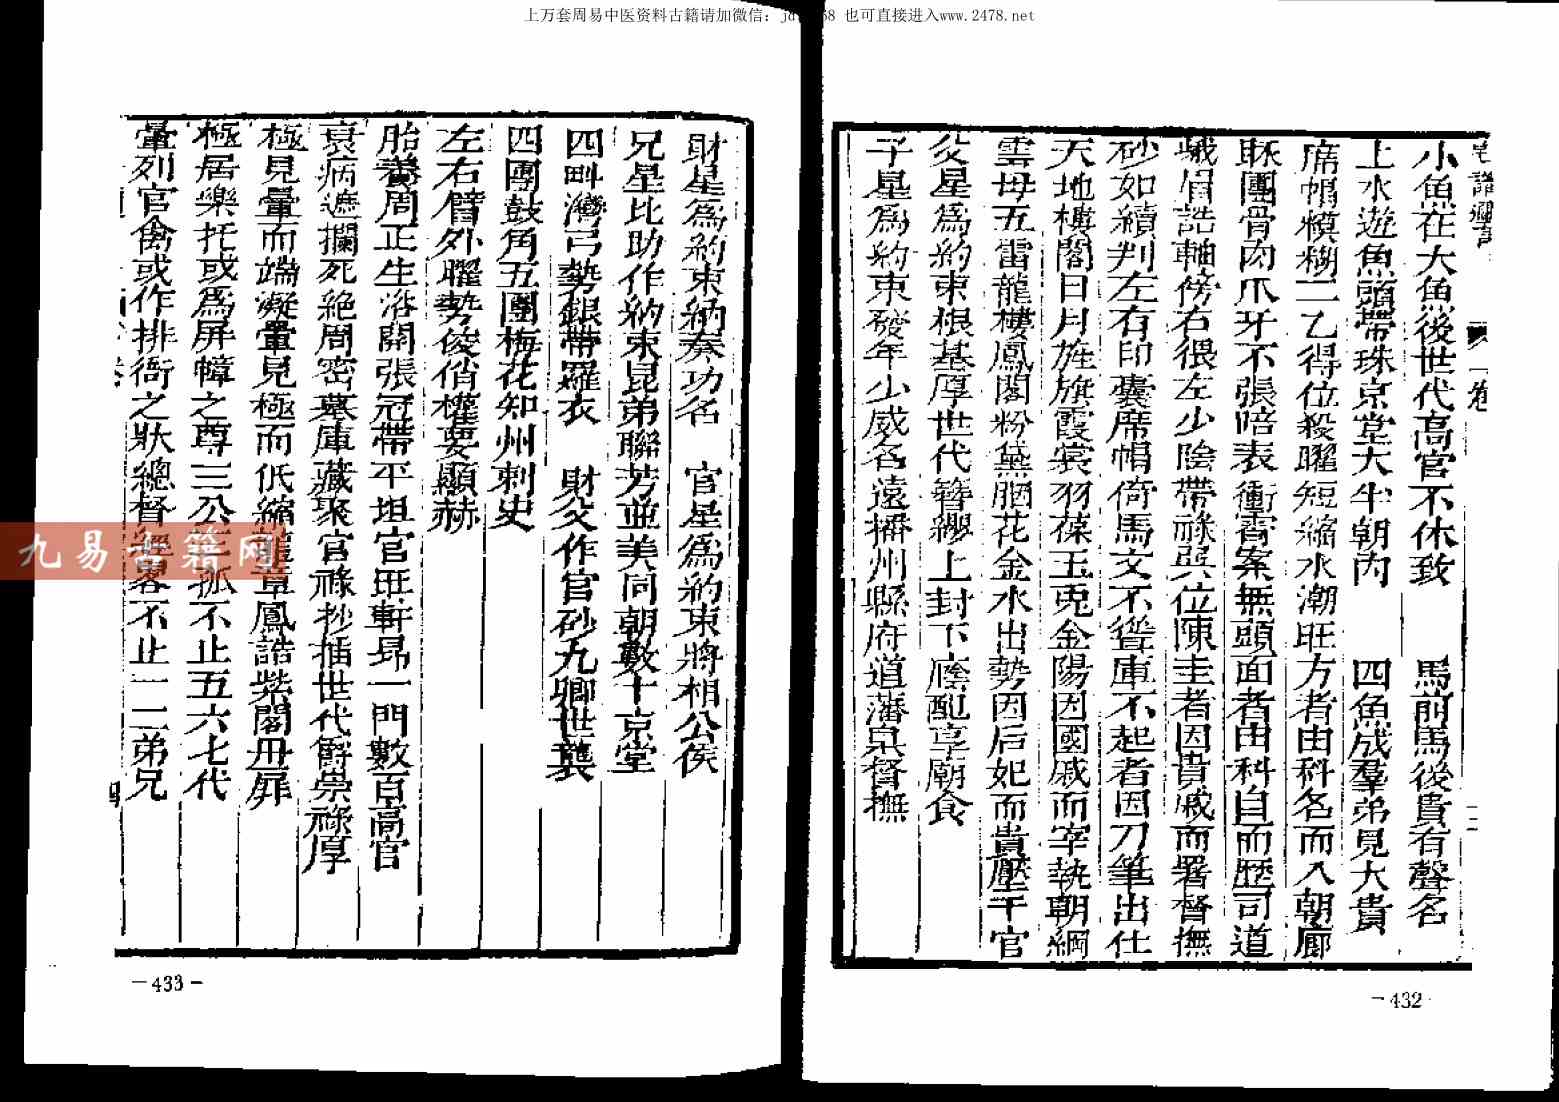 上万套周易中医资料古籍请加微信：jd 68 也可直接进入www.2478.net
卷一
小魚在大魚後世代高官不休致 馬前馬後貴有聲名
上水遊魚頭帶珠京堂大半朝內 四魚成羣弟兄大貴
席帽模糊二乙得位殺曜短縮水潮旺方者由科名而入朝廊
團骨肉爪牙不張陪表衝霄案無頭面者由科目而歷司道
蛾眉誥軸傍右偎左少陰帶祿巽位陳圭者因貴戚而署督撫
砂如續判左有印囊席帽倚馬文不聳庫不起者因刀筆出仕
天地樓閣日月旌旗霞裳羽葆玉兎金陽因國戚而宰執朝綱
雲母五雷龍樓鳳閣粉黛胭花金水出勢因后妃而貴壓千官
父星爲約束根基厚世代簪纓上封下廕配享廟食
子星爲約束發年少威名遠播州縣府道藩臬督撫
－432－
財星爲約束納奏功名 官星爲約束將相公侯
兄星比助作約束昆弟聯芳並美同朝數十京堂
四畔灣弓勢銀帶羅衣 財父作官砂九卿世襲
四團鼓角五團梅花知州刺史
左右臂外曜勢俊俏權要顯赫
胎養周正生浴開張冠帶平坦官旺軒昂一門數百高官
衰病遮攔死絕周密墓庫藏聚官祿抄插世代爵崇祿厚
極見暈而端凝暈見極而低縮龍章鳳誥紫閣丹扉
極居樂托或爲屏幛之尊三公三孤不止五六七代
暈列官禽或作排衙之狀總督經畧不止一二弟兄
四
－433－
九易古籍网